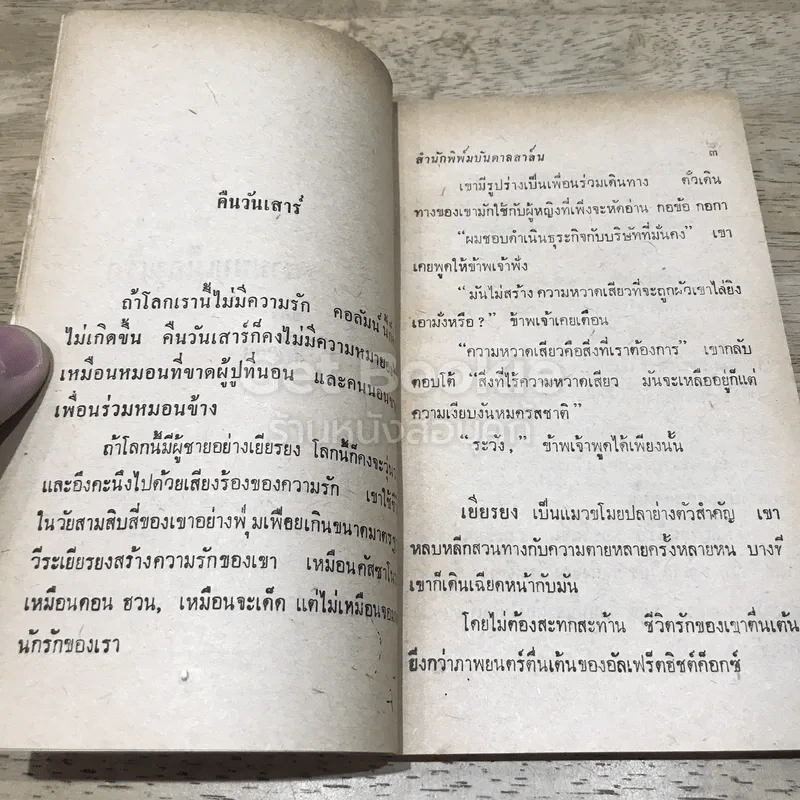 คืนวันเสาร์
ถ้าโลกเรานี้ไม่มีความรัก คอลัมน์
ไม่เกิดขึ้น คืนวันเสาร์ก็คงไม่มีความหมาย
เหมือนหมอนที่ขาดผู้ปูที่นอน และคนนอน
เพื่อนร่วมหมอนข้าง
ถ้าโลกนี้มีผู้ชายอย่างเยียรยง โลกนี้ก็คงจะ
และอึงคะนึงไปด้วยเสียงร้องของความรัก เขาใช้
ในวัยสามสิบสี่ของเขาอย่างฟุ่มเฟือยเกินขนาด
วีระเยียรยงสร้างความรักของเขา เหมือน
เหมือนดอน ฮวน, เหมือนจะเด็ด แต่ไม่เหมือน
นักรักของเรา
สำนักพิพ์มบันดาลสาล์น ๓
เขามีรูปร่างเป็นเพื่อนร่วมเดินทาง ตั๋วเดิน
ทางของเขามักใช้กับผู้หญิงที่เพิ่งจะหัดอ่าน กอข้อ กอกา
“ผมชอบดำเนินธุระกิจกับบริษัทที่มั่นคง” เขา
เคยพูดให้ข้าพเจ้าฟัง
“มันไม่สร้าง ความหวาดเสียวที่จะถูกผัวเขาไล่ยิง
เอามั่งหรือ?” ข้าพเจ้าเคยเตือน
“ความหวาดเสียวคือสิ่งที่เราต้องการ” เขากลับ
ตอบโต้ “สิ่งที่ไร้ความหวาดเสียว มันจะเหลืออยู่ก็แต่
ความเงียบงันหมดรสชาติ”
“ระวัง,” ข้าพเจ้าพูดได้เพียงนั้น
เยียรยง เป็นแมวขโมยปลาย่างตัวสำคัญ เขา
หลบหลีกสวนทางกับความตายหลายครั้งหลายหน บางที
เขาก็เดินเฉียดหน้ากับมัน
โดยไม่ต้องสะทกสะท้าน ชีวิตรักของเขาตื่นเต้น
ยิ่งกว่าภาพยนตร์ตื่นเต้นของอัลเฟร็ดฮิชต์ค็อกซ์
Get Bookie
ร้านหนังสือมุกกี้